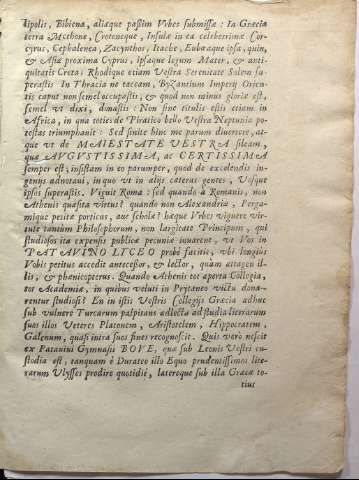 lipolis, Bibiena, aliæque passim Vrbes submissæ: In Græcia
terra Methone, Crotonque, Insulæ in ea celeberrimæ Cor-
cyrus, Cephalenea, Zacynthos, Itache, Eubœaque ipsa, quin,
& Asiæ proxima Cyprus, ipsaque legum Mater, & anti-
quitatis Creta: Rhodique etiam Vestra Serenitate Solem su-
perastis In Thracia ne taceam, Byzantium Imperij Orien-
tis caput non semel occupastis, & quod non minus gloriæ est,
semel vt dixi, donastis: Non sine titulis estis etiam in
Africa, in qua toties de Piratico bello Vestra Neptunia po-
testas triumphauit: Sed sinite hinc me parum diuertere, at-
que vt de MAIESTATE VESTRA sileam,
quæ AVGVSTISSIMA, ac CERTISSIMA
semper est; insistam in eo parumper, quod de excolendis in-
genijs adnotaui, in quo vt in alijs cæteras gentes, Vosque
ipsos superastis. Viguit Roma: sed quando à Romanis, non
Athenis quæsita virtus? quando non Alexandriæ, Perga-
mique petitæ porticus, aut scholæ? hæque Vrbes viguere vir-
tute tantum Philosophorum, non largitate Principum, qui
studiosos ita expensis publicæ pecuniæ iuuarent, vt Vos in
PATAVINO LICEO probè facitis, vbi longius
Vobis petitus accedit antecessor, & lector, quàm attagen I-
lis, & phœnicopterus. Quando Athenis tot aperta Collegia,
tot Academiæ, in quibus veluti in Prytaneo victu dona-
rentur studiosi? En in istis Vestris Collegijs Græcia adhuc
sub vulnere Turcarum palpitans adlocta ad studia literarum
suos illos Veteres Platonem, Aristotelem, Hippocratem,
Galenum, quasi intra suos fines recognoscit. Quis verò nescit
ex Patauini Gymnasij BOVE, qua sub Leonis Vestri cu-
stodia est, tanquam è Durateo illo Equo prudentissimos lite-
rarum Ulysses prodire quotidiè, latereque sub illa Græcæ to-
tius